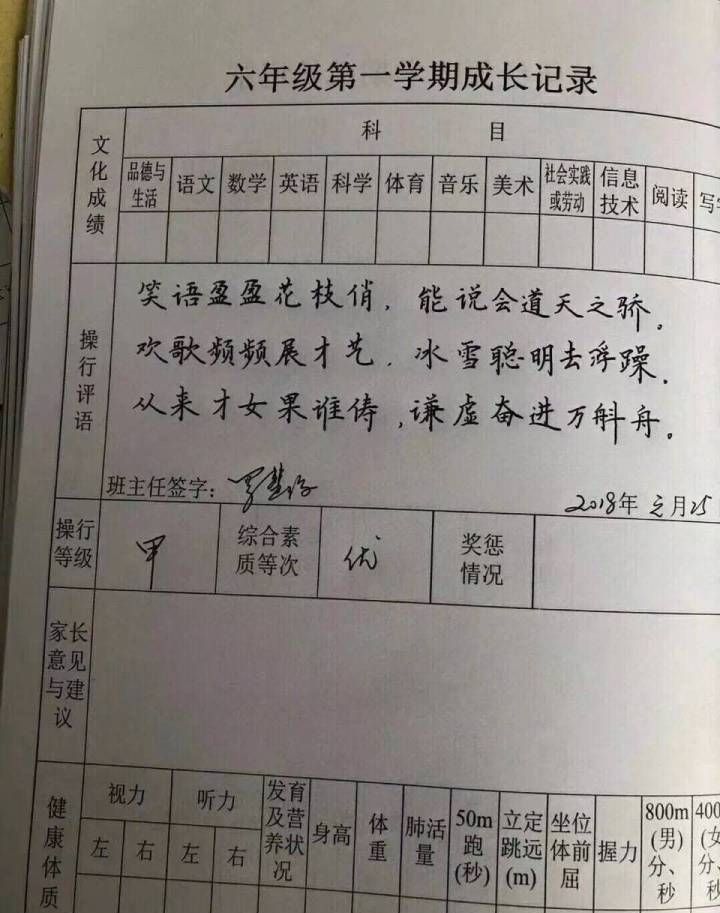 六年级第一学期成长记录
文化成绩
科目
品德与生活 语文 数学 英语 科学 体育 音乐 美术 社会实践或劳动 信息技术 阅读
操行评语
笑语盈盈花枝俏，能说会道天之骄。
欢歌频频展才艺，冰雪聪明去浮躁。
从来才女果谁俦，谦虚奋进万斛舟。
班主任签字：
2018年元月25
操行等级 甲 综合素质等次 优 奖惩情况
家长意见与建议
健康体质
视力 听力 发育及营养状况 身高 体重 肺活量 50m跑(秒) 立定跳远(m) 坐位体前屈 握力 800m(男)分、秒
左 右 左 右